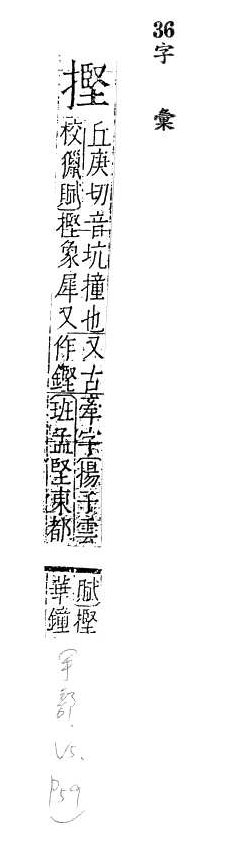 36 字彙
摼
丘庚切音坑撞也又古牽字揚子雲
校獵賦摼象犀又作鏗班孟堅東都
賦摼
華鐘
手部. V5. P59